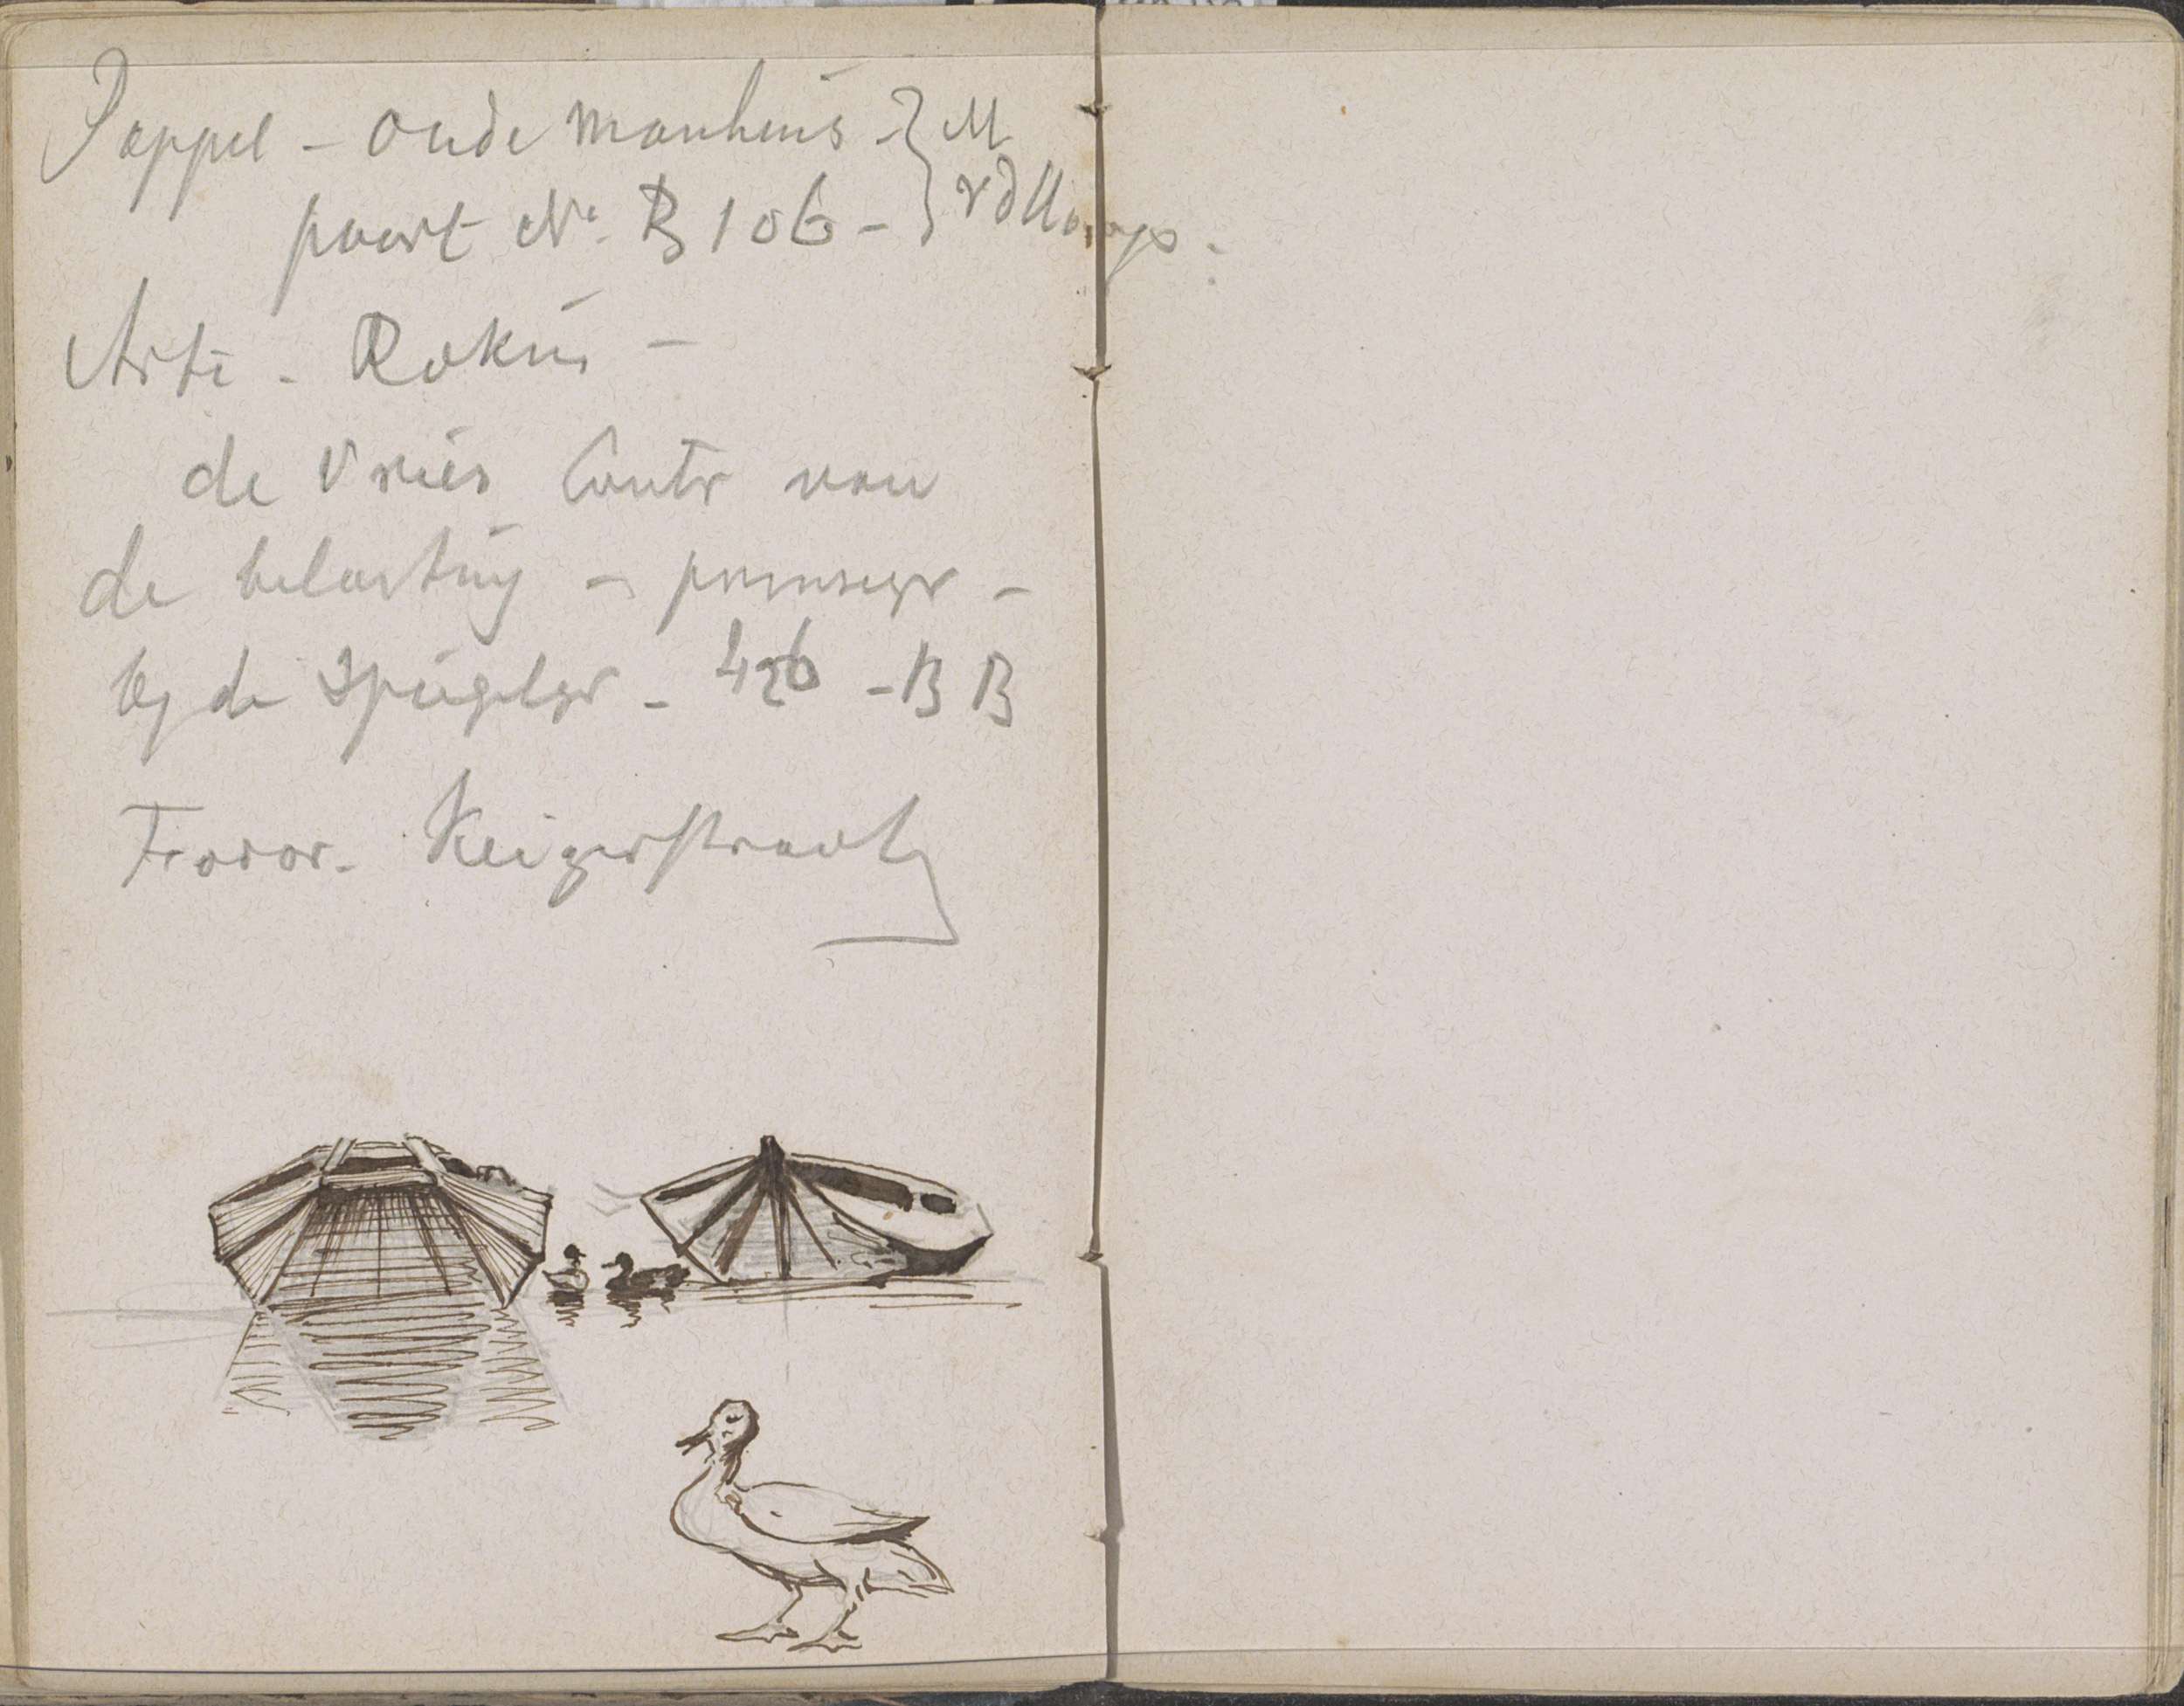 Pappel - oude manhuis -
poort No. B 106 -
Arti - Rokin -
de Vries Contr van
de belasting - prinsegr -
by de Spiegelgr - 426 - BB
Keizerstraat